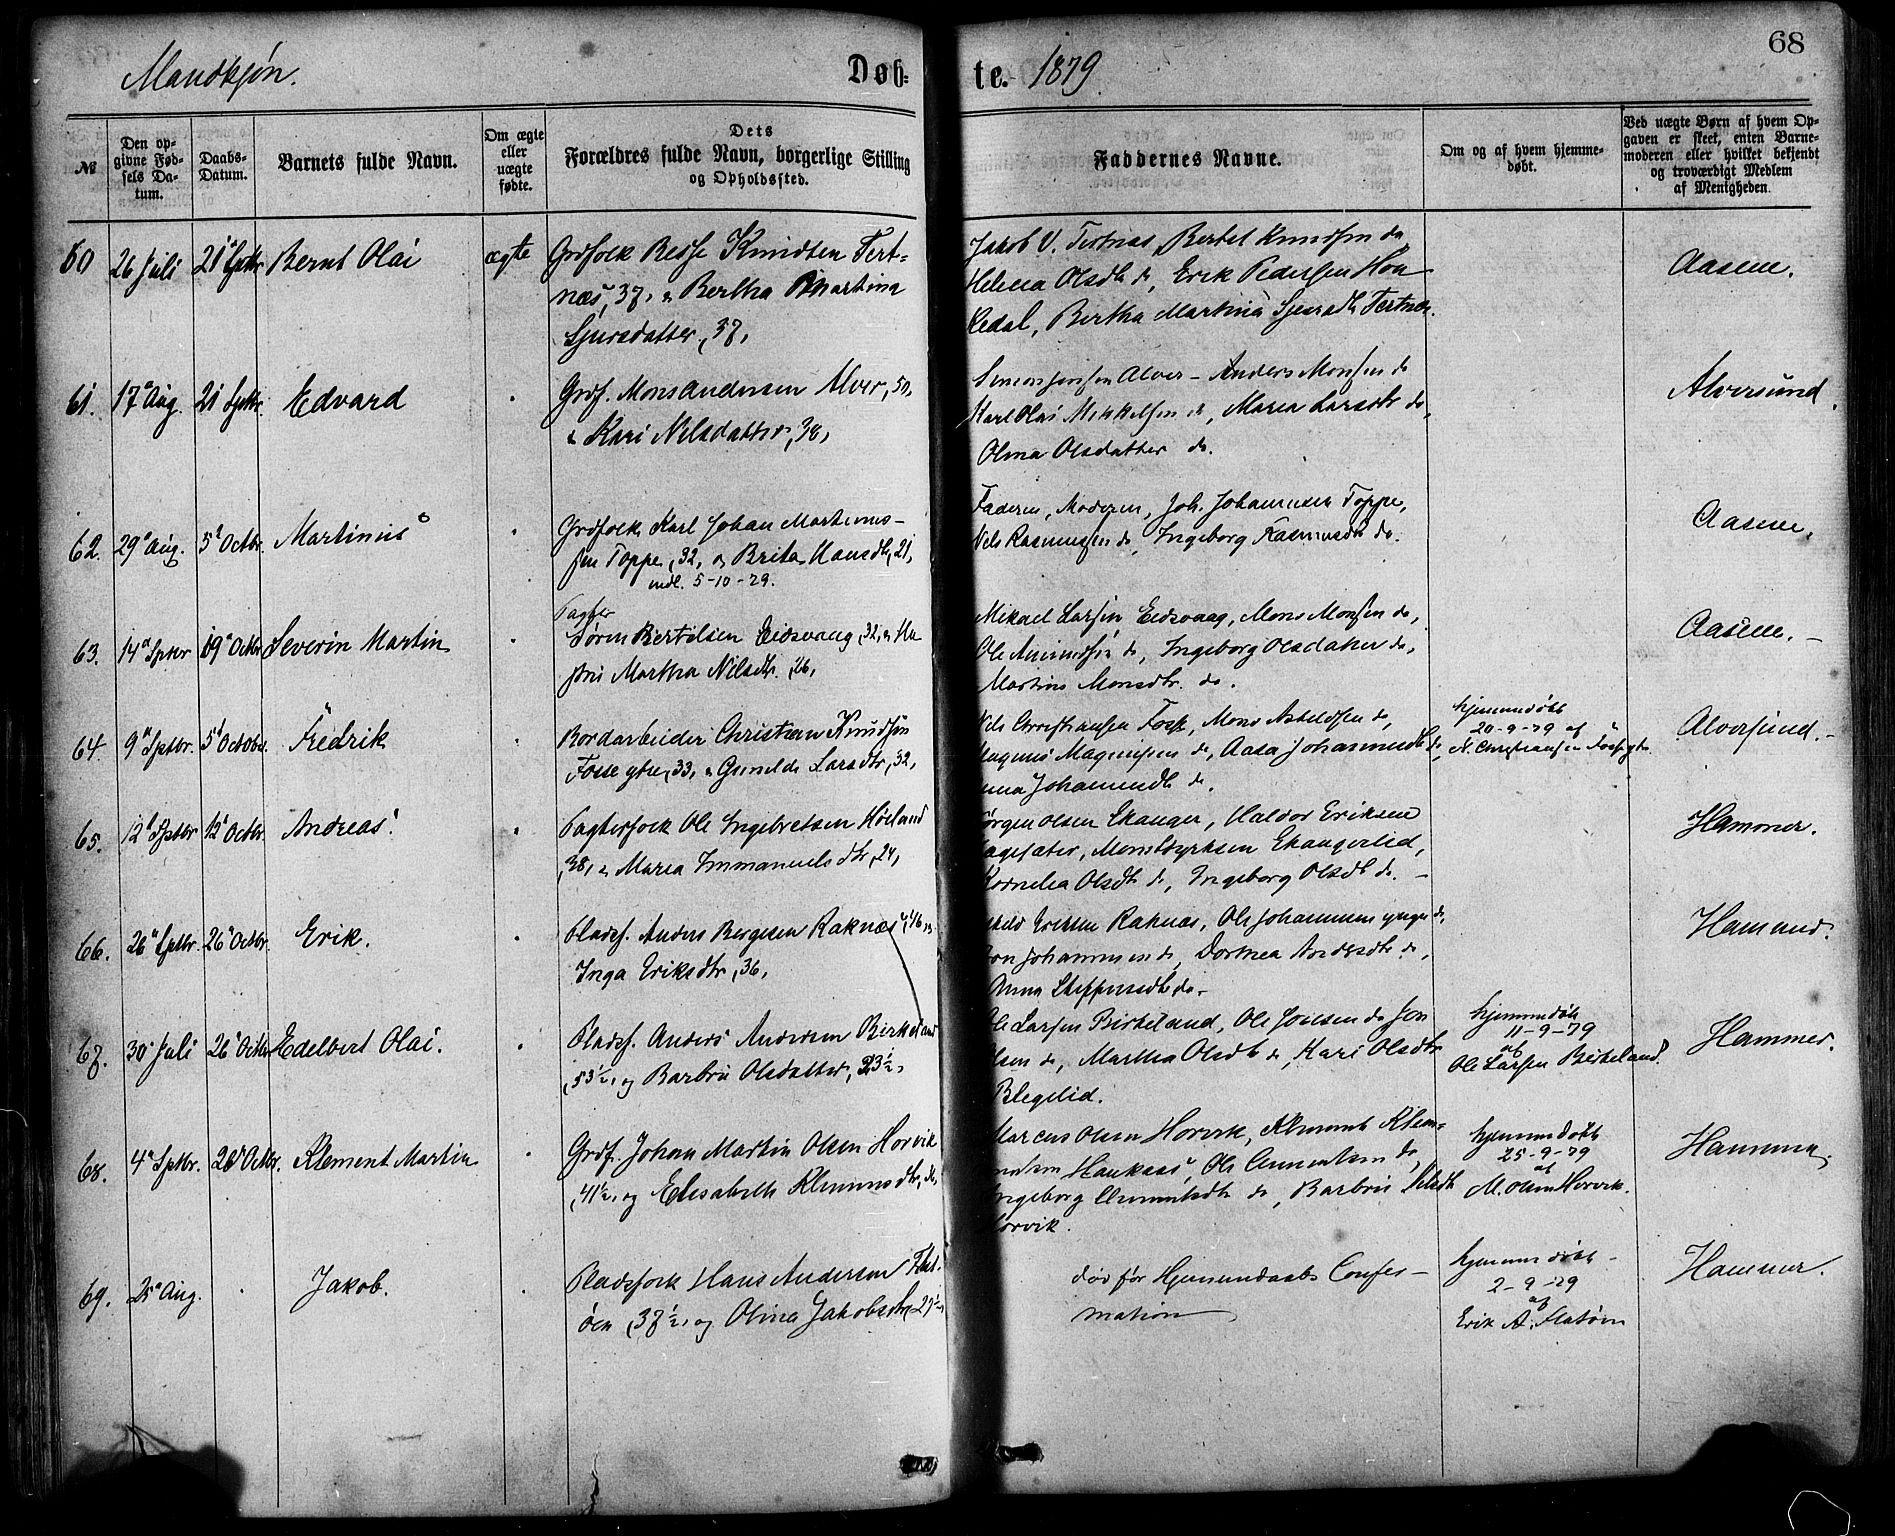 68
Mandkjøn.
Døb=
te. 1879.
№
Den op-
givne Fød-
sels Da-
tum.
Daabs-
Datum.
Barnets fulde Navn.
Om ægte
eller
uægte
fødte.
Dets
Forældres fulde Navn, borgerlige Stilling
og Opholdssted.
Faddernes Navne.
Om og af hvem hjemme-
døbt.
Ved uægte Børn af hvem Op-
gaven er skeet, enten Barne-
moderen eller hvilket bekjendt
og troværdigt Medlem
af Menigheden.
60 26 Juli 21 Sptbr. Bernt Olai ægte
Grdfolk Besse Knudsen Tert-
næs, 37, & Bertha Martina
Sjursdatter, 37,
Jakob V. Tertnæs, Bertel Knudsen do
Helena Olsdtr do, Erik Pedersen Hou
kedal, Bertha Martina Tertnes.
Aasene.
61. 17 Aug. 21 Sptbr. Edvard
Grdf. Mons Andersen Alver, 50,
& Kari Nilsdatter, 38,
Simon Jensen Alver - Anders Monsen do
Karl Olai Mikkelsen do, Maria Larsdtr do,
Olina Olsdatter do.
Alversund.
62. 29 Aug. 5 Octbr. Martinus
Grdfolk Karl Johan Martinus-
sen Toppe, 32, og Brita Hansdtr, 21,
indl. 5-10-79.
Faderen, Moderen, Joh. Johannesen Toppe,
Nels Rasmussen do, Ingeborg Rasmusdtr do.
Aasene.
63. 14 Sptbr 19 Octbr Severin Martin
Pagter
Søren Bertelsen Eidsvaag, 32, & Hu
stru Martha Nilsdtr. 26,
Mikael Larsen Eidsvaag, Mons Monsen do,
Ole Amundsen do, Ingeborg Olsdatter do,
Martine Monsdtr. do.
Aasene. -
64. 9 Sptbr. 5 Octobr. Fredrik
Bordarbeider Christian Knudsen
Fosse ytre, 33, & Gunilde Larsdtr, 32,
Nils Christiansen Fosse, Mons do,
Magnus Magnussen do, Aasa Johannesdtr do,
Johannesdtr do.
hjemmedøbt
20-9-79 af
N. Christiansen Fosse ytre
Alversund. -
65. 12 Sptbr 12 Octbr Andreas.
Pagterfolk Ole Ingebretsen Høiland
38, & Maria Immanuelsdtr, 24,
Jørgen Olsen Ekanger, Haldor Eriksen
Mons Ekangerlid,
Kornelia Olsdtr do, Ingeborg Olsdtr do. -
Hammer.
66. 26 Sptbr. 26 Octbr. Erik.
Pladsf. Anders Bergesen Raknæs, 46, &
Inga Eriksdtr, 36,
Eriksen Raknæs, Ole Johannesen yngre do,
Johannesen do, Dorthea Andersdtr do,
Anna Steffensdtr do.
Hammer.
67. 30 Juli 26 Octbr Edelbert Olai.
Pladsf. Anders Andersen Birkeland
, 53½, og Barbro Olsdatter, 33½,
Ole Larsen Birkeland, Ole Jonsen do, Jon
Olsen do, Martha Olsdtr do, Kari Olsdtr
Blegelid.
hjemmedøbt
11-9-79
af
Ole Larsen Birkeland.
Hammer.
68. 4 Sptbr. 26 Octbr. Klement Martin
Grdf. Johan Martin Olsen Horvik
, 41½, og Elisabeth Klemmesdtr,
Marcus Olsen Horvik, Klement Klem-
mentsen Haukaas, Ole Clementsen do,
Ingeborg Clementsdtr do, Barbro
Horvik.
hjemmedøbt
25-9-79
af
M. Olsen Horvik.
Hammer.
69. 25 Aug. Jakob.
Pladsfolk Hans Andersen Flat-
øen, 37½, og Olina Jakobsdtr, 27½
død før Hjemmedaabs Confir-
mation
hjemmedøbt -
2-9-79
af
Erik A. Flatøen
Hammer.